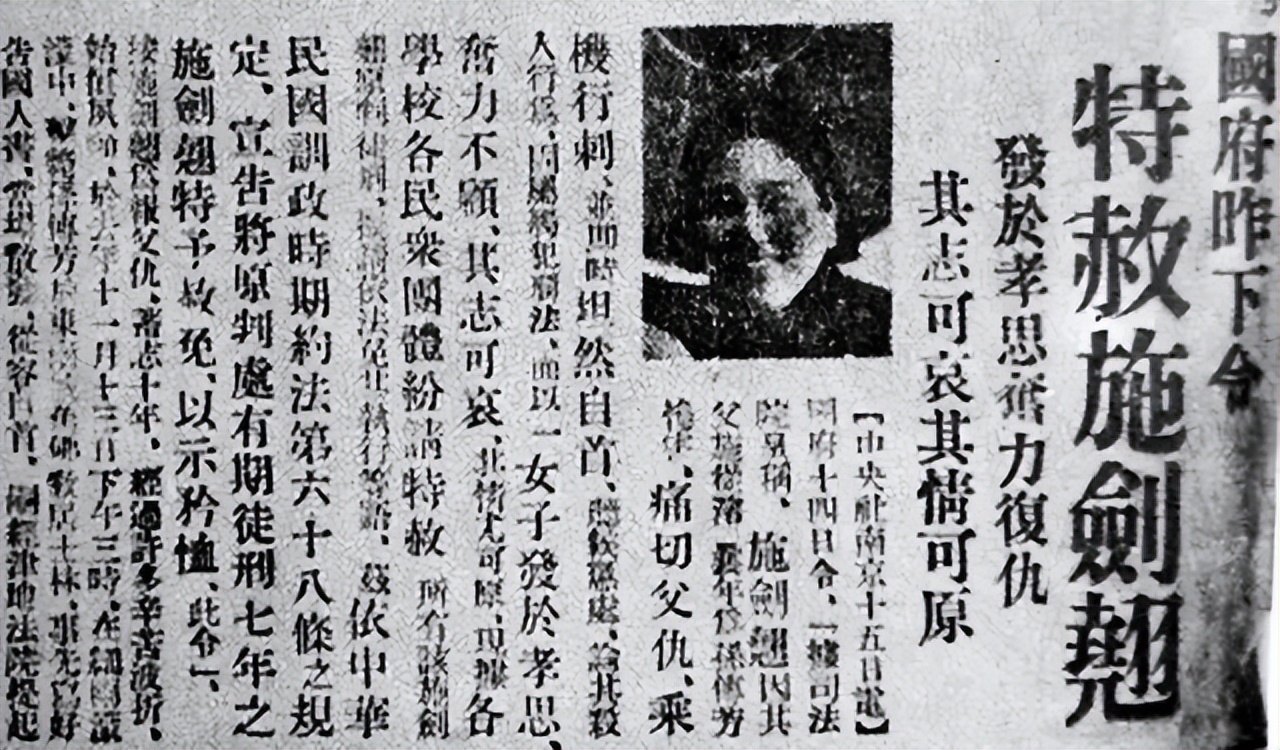 國府昨下令
特赦施劍翹
發於孝思奮力復仇
其志可哀其情可原
【中央社南京十五日電】
國府十四日令、「據司法
院呈稱、施劍翹因其
父施從濱 年 孫傳芳
慘害、痛切父仇、乘
機行刺、並面時坦然自首、 論其殺
人行為、固屬觸犯刑法、而以一女子發於孝思、
奮力不顧、其志可哀、其情尤可原、現據各
學校各民衆團體紛請特赦 所有該施劍
翹 依法免其執行等語、茲依中華
民國訓政時期約法第六十八條之規
定、宣告將原判處有期徒刑七年之
施劍翹特予赦免、以示矜恤、此令」、
按施劍翹為報父仇、蓄志十年、經過許多辛苦波折、
始 於去年十一月十三日下午三時、在細雨濛
濛中、將孫傳芳 佛教居士林、事先寫好
告國人書、當場散發、從容自首、嗣經津地法院提起